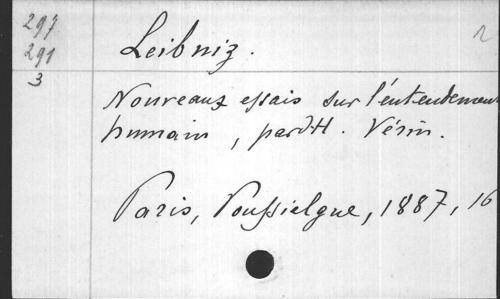 297
291
3
Leibniz.
Nouveaux essais sur l'entendement
humain, par H. Vérin.
Paris, Poussielgue, 1887, 16